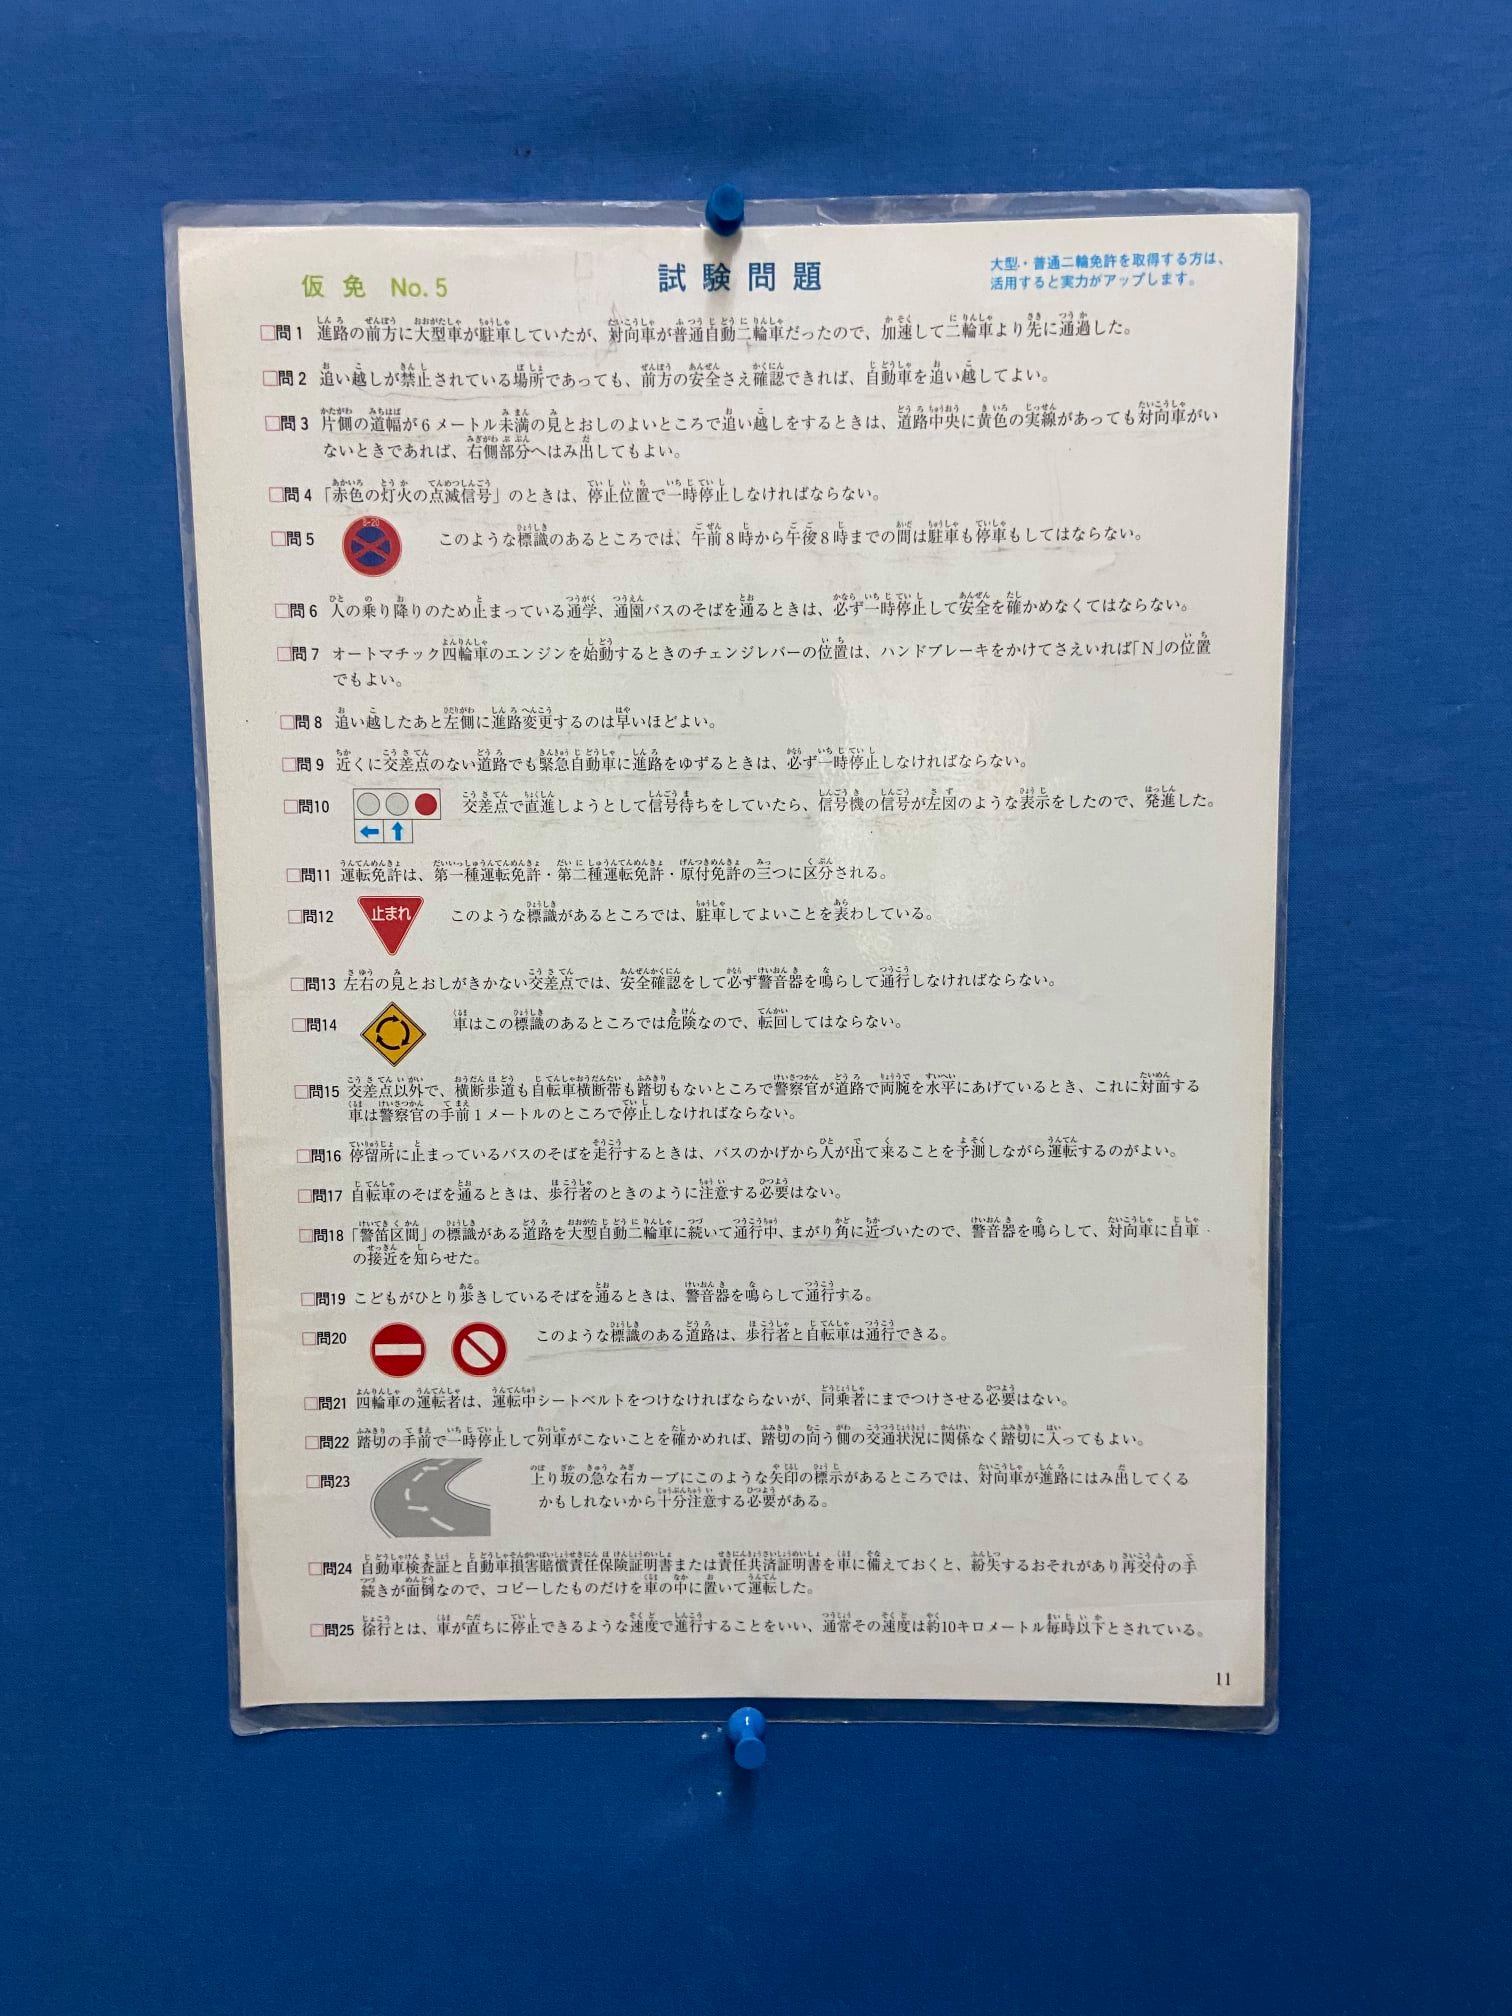 仮免 No.5
試験問題
大型・普通二輪免許を取得する方は、
活用すると実力がアップします。
□問1 進路の前方に大型車が駐車していたが、対向車が普通自動二輪車だったので、加速して二輪車より先に通過した。
□問2 追い越しが禁止されている場所であっても、前方の安全さえ確認できれば、自動車を追い越してよい。
□問3 片側の道幅が6メートル未満の見とおしのよいところで追い越しをするときは、道路中央に黄色の実線があっても対向車がい
ないときであれば、右側部分へはみ出してもよい。
□問4 「赤色の灯火の点滅信号」のときは、停止位置で一時停止しなければならない。
8-20
□問5 このような標識のあるところでは、午前8時から午後8時までの間は駐車も停車もしてはならない。
□問6 人の乗り降りのため止まっている通学、通園バスのそばを通るときは、必ず一時停止して安全を確かめなくてはならない。
□問7 オートマチック四輪車のエンジンを始動するときのチェンジレバーの位置は、ハンドブレーキをかけてさえいれば「N」の位置
でもよい。
□問8 追い越したあと左側に進路変更するのは早いほどよい。
□問9 近くに交差点のない道路でも緊急自動車に進路をゆずるときは、必ず一時停止しなければならない。
□問10 交差点で直進しようとして信号待ちをしていたら、信号機の信号が左図のような表示をしたので、発進した。
□問11 運転免許は、第一種運転免許・第二種運転免許・原付免許の三つに区分される。
止まれ
□問12 このような標識があるところでは、駐車してよいことを表わしている。
□問13 左右の見とおしがきかない交差点では、安全確認をして必ず警音器を鳴らして通行しなければならない。
□問14 車はこの標識のあるところでは危険なので、転回してはならない。
□問15 交差点以外で、横断歩道も自転車横断帯も踏切もないところで警察官が道路で両腕を水平にあげているとき、これに対面する
車は警察官の手前1メートルのところで停止しなければならない。
□問16 停留所に止まっているバスのそばを走行するときは、バスのかげから人が出て来ることを予測しながら運転するのがよい。
□問17 自転車のそばを通るときは、歩行者のときのように注意する必要はない。
□問18 「警笛区間」の標識がある道路を大型自動二輪車に続いて通行中、まがり角に近づいたので、警音器を鳴らして、対向車に自車
の接近を知らせた。
□問19 こどもがひとり歩きしているそばを通るときは、警音器を鳴らして通行する。
□問20 このような標識のある道路は、歩行者と自転車は通行できる。
□問21 四輪車の運転者は、運転中シートベルトをつけなければならないが、同乗者にまでつけさせる必要はない。
□問22 踏切の手前で一時停止して列車がこないことを確かめれば、踏切の向う側の交通状況に関係なく踏切に入ってもよい。
□問23 上り坂の急な右カーブにこのような矢印の標示があるところでは、対向車が進路にはみ出してくる
かもしれないから十分注意する必要がある。
□問24 自動車検査証と自動車損害賠償責任保険証明書または責任共済証明書を車に備えておくと、紛失するおそれがあり再交付の手
続きが面倒なので、コピーしたものだけを車の中に置いて運転した。
□問25 徐行とは、車が直ちに停止できるような速度で進行することをいい、通常その速度は約10キロメートル毎時以下とされている。
11